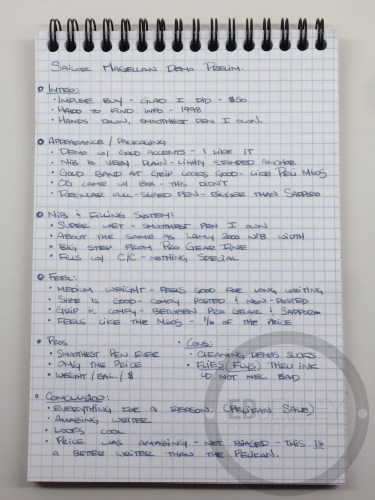 Sailor Magellan Demo Prelim.
Intro:
• Impulse Buy - Glad I did - $50
• Hard to find info - 1998
• Hands down, smoothest pen I own.
Appearance / Packaging:
• Demo w/ Gold Accents - I like it
• Nib is very plain - Limited standard anchor
• Gold band at grip looks good - like Peli M605
• OG came w/ box - this didn't
• Regular full-sized pen - bigger than Sapporo
Nib & Filling System:
• Super wet - smoothest pen I own
• About the same as Lamy 2000 nib width
• Big step from Pro Gear Fine
• Fills w/ C/C - nothing special
Feel:
• Medium weight - feels good for long writing
• Size is good - comfy posted & non-posted
• Grip is comfy - between Pro Gear & Sapporo
• Feels like the M605 - 1/6 of the price
Pros
• Smoothest pen ever
• OMG the price
• Weight/Bal/$
Cons:
• Cleaning demos sucks
• Flies (Flys) thru ink
↳ not nec. bad
Conclusion:
• Everything for a reason. (Pelikan Sale)
• Amazing writer
• Looks cool
• Price was amazing - not biased - this is
a better writer than the Pelikan.
EB